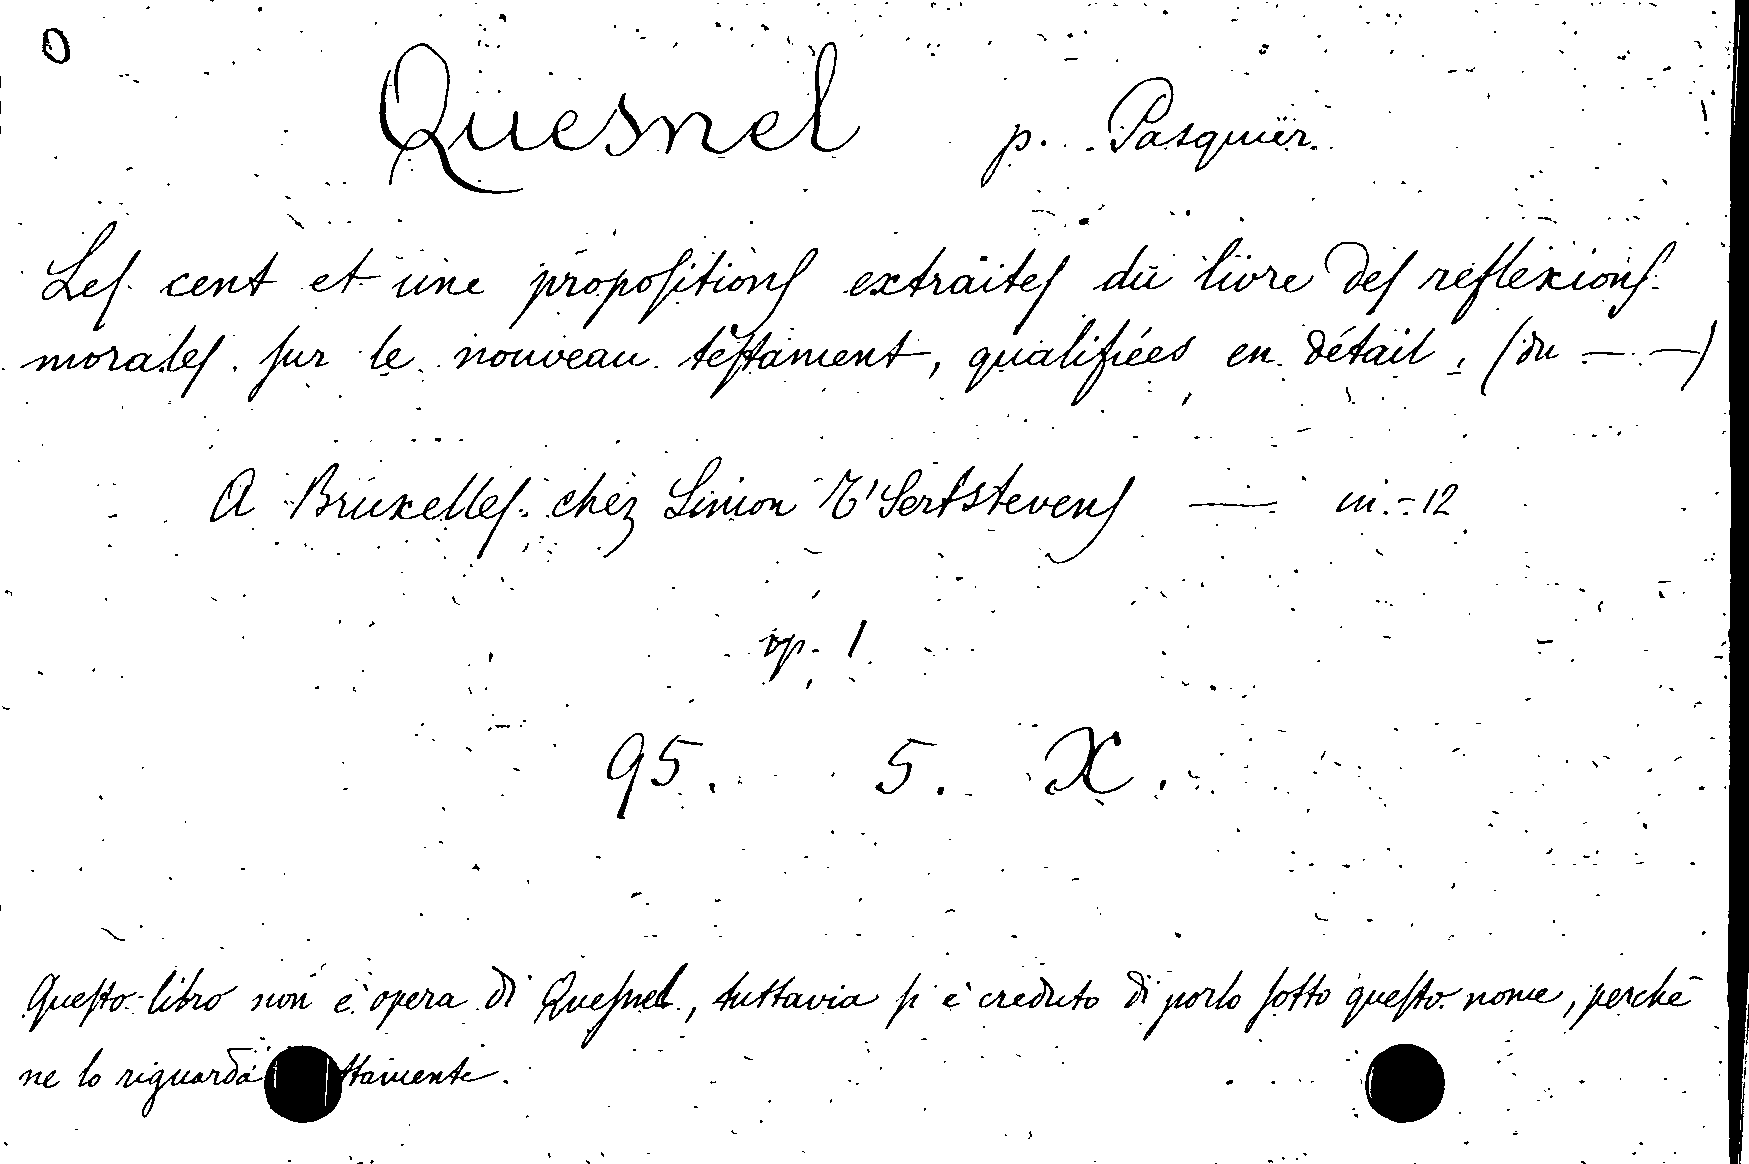 O
Quesnel p. Pasquier.
Les cent et une propositions extraites du livre des reflexions
morales sur le nouveau testament, qualifiées en détail. (du — —)
A Bruxelles chez Simon T'Sertstevens — in-12
op. 1
95. 5. X.
Questo libro non è opera di Quesnel, tuttavia si è creduto di porlo sotto questo nome, perchè
ne lo riguarda ttamente.